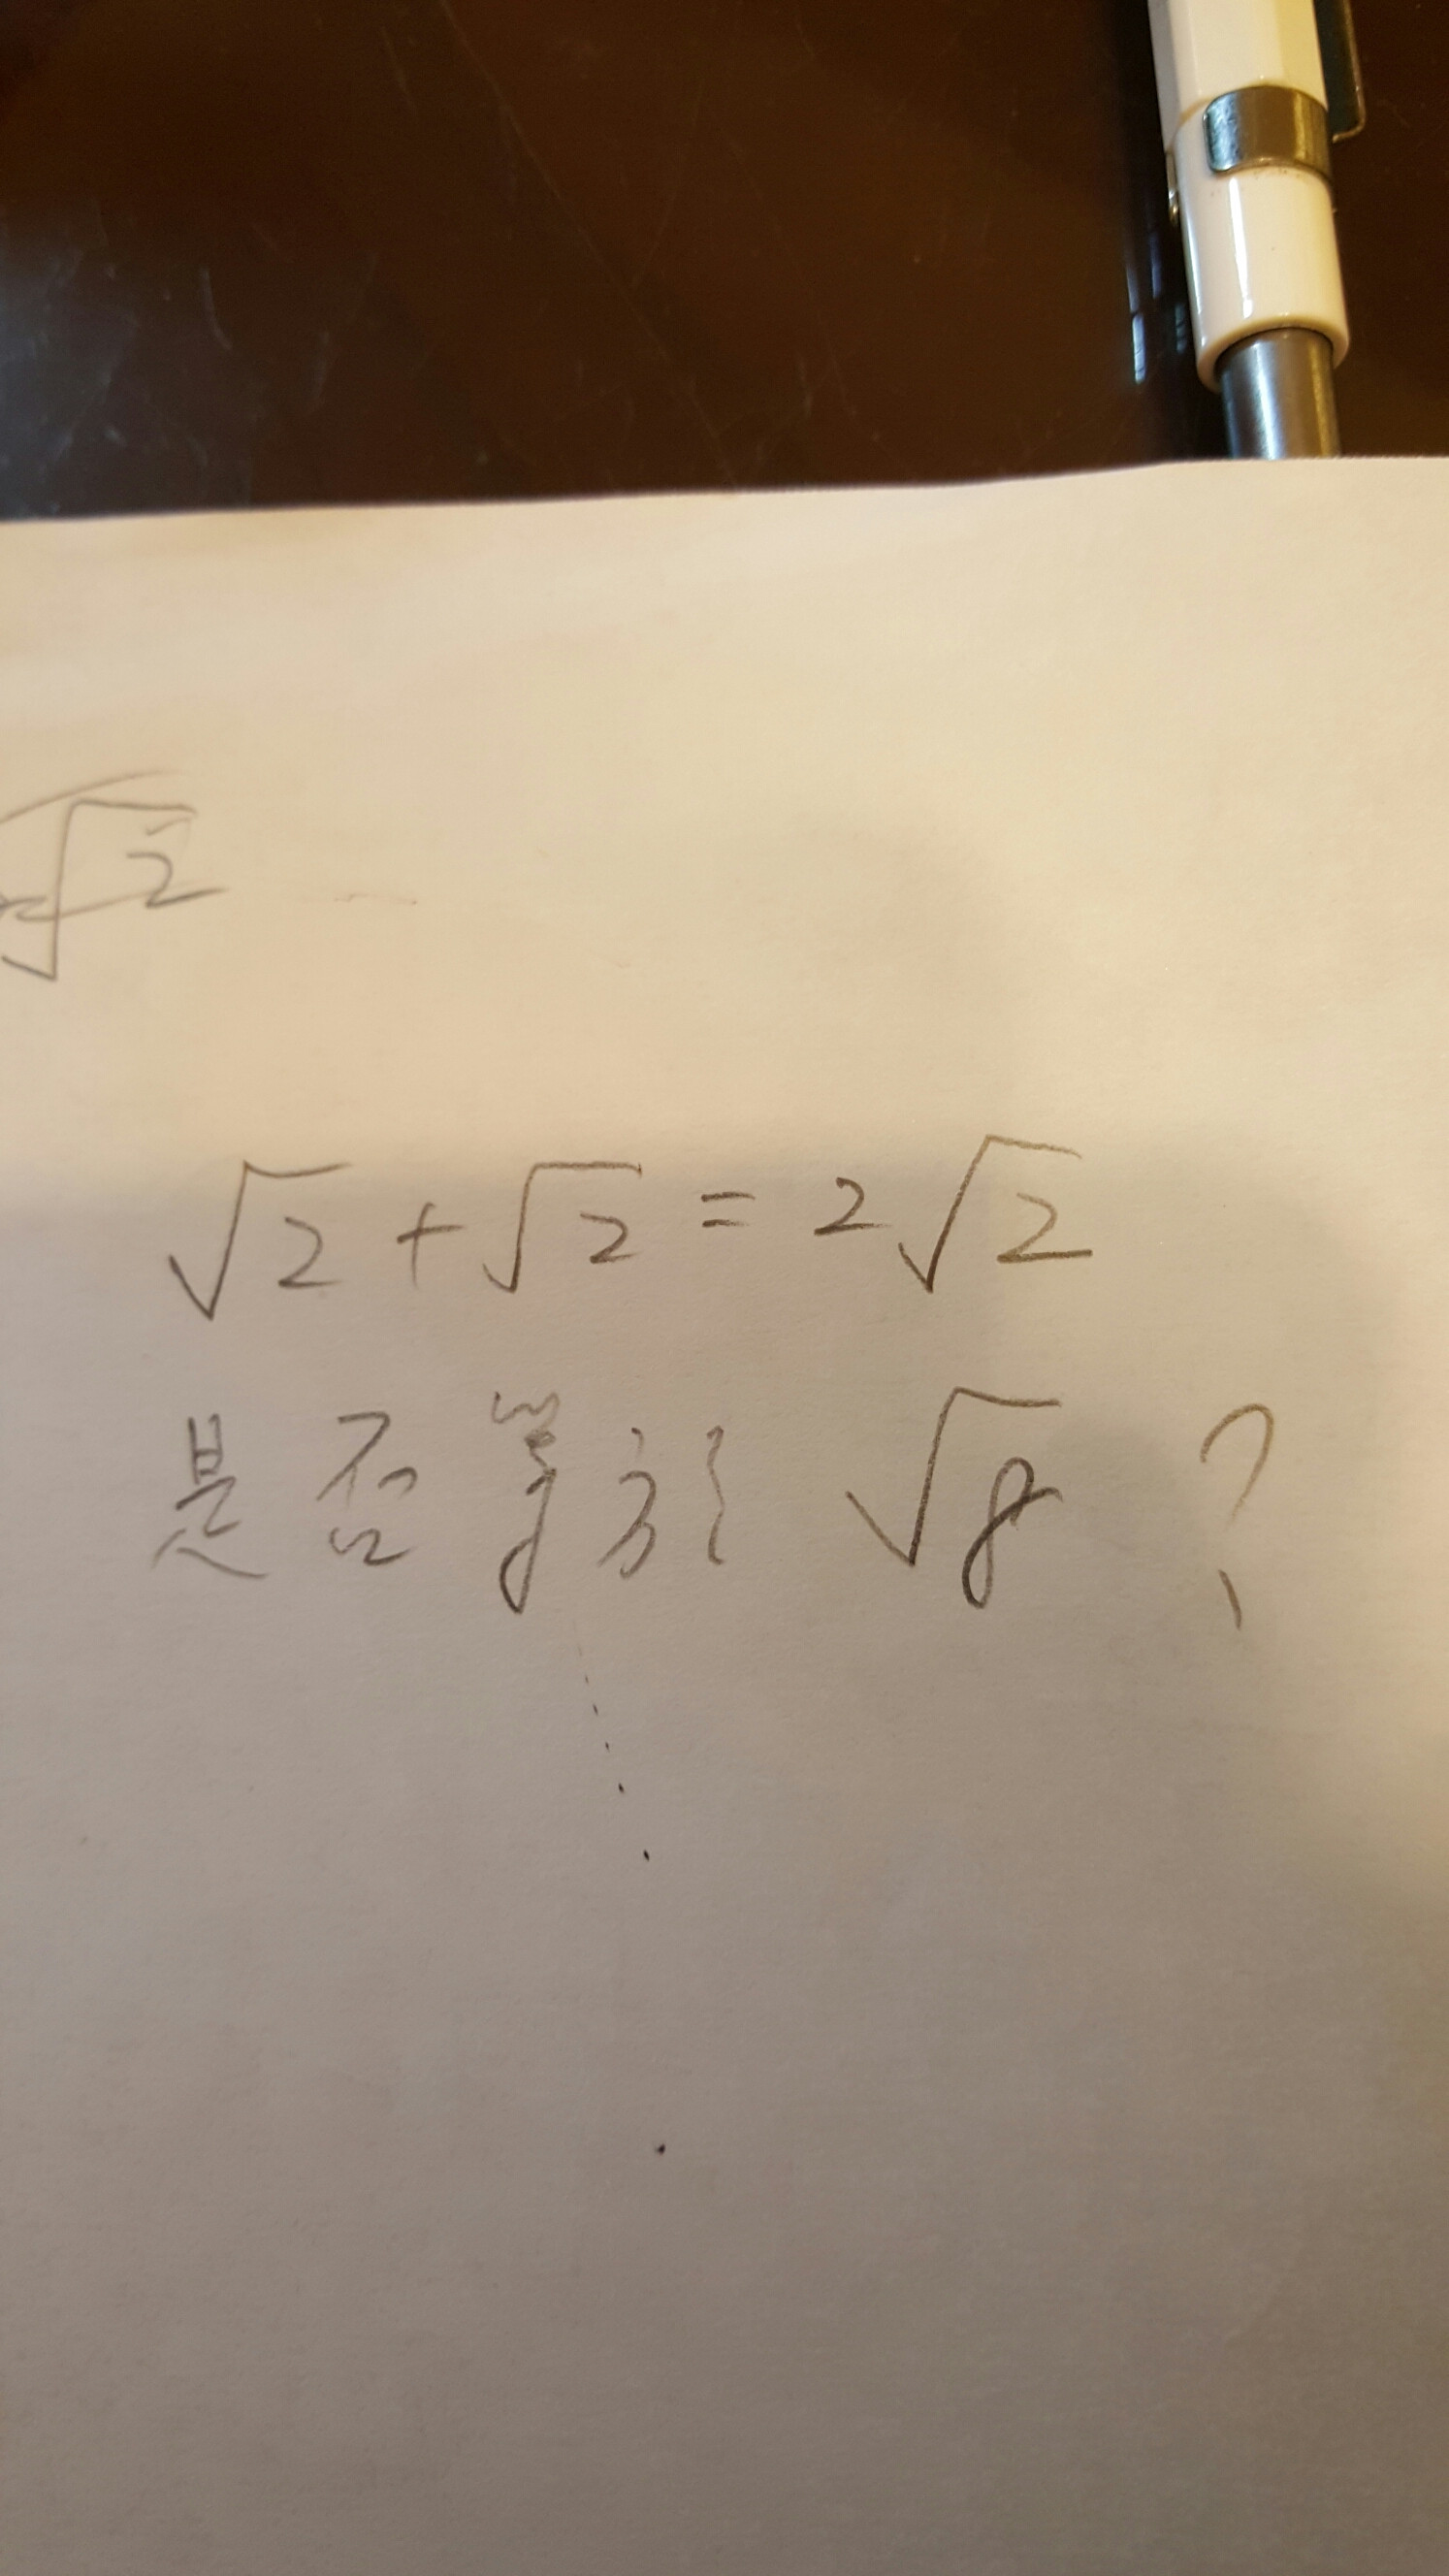 √2
√2 + √2 = 2√2
是否等於 √8 ?